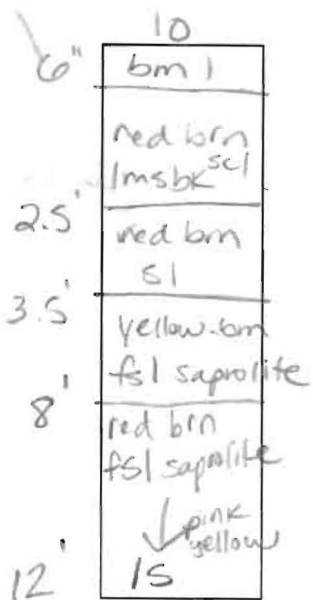 10
6" brn l
red brn
1msbk scl
2.5' red brn
sl
3.5' yellow-brn
fsl saprolite
8' red brn
fsl saprolite
pink
yellow
12' ls